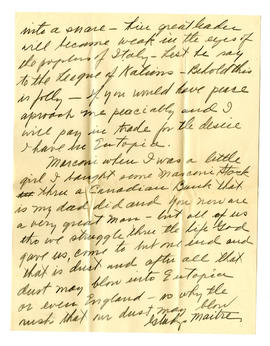 into a snare - Fine great leader
will become weak in the eyes of
the populace of Italy - Lest he say
to the League of Nations - Behold this
is folly - If you would have peace
aproach me peacibly and I
will pay in trade for the desire
I have in Eutopia.
Marconi when I was a little
girl I bought some Marconi Stock
thru a Canadian Bank that
is my dad did and you now are
a very great man - but all of us
tho we struggle thru the life God
gave us, come to but one end and
that is dust and after all that
dust may blow into Eutopia
or even England - so why the
rush that our dust may blow
Maitre